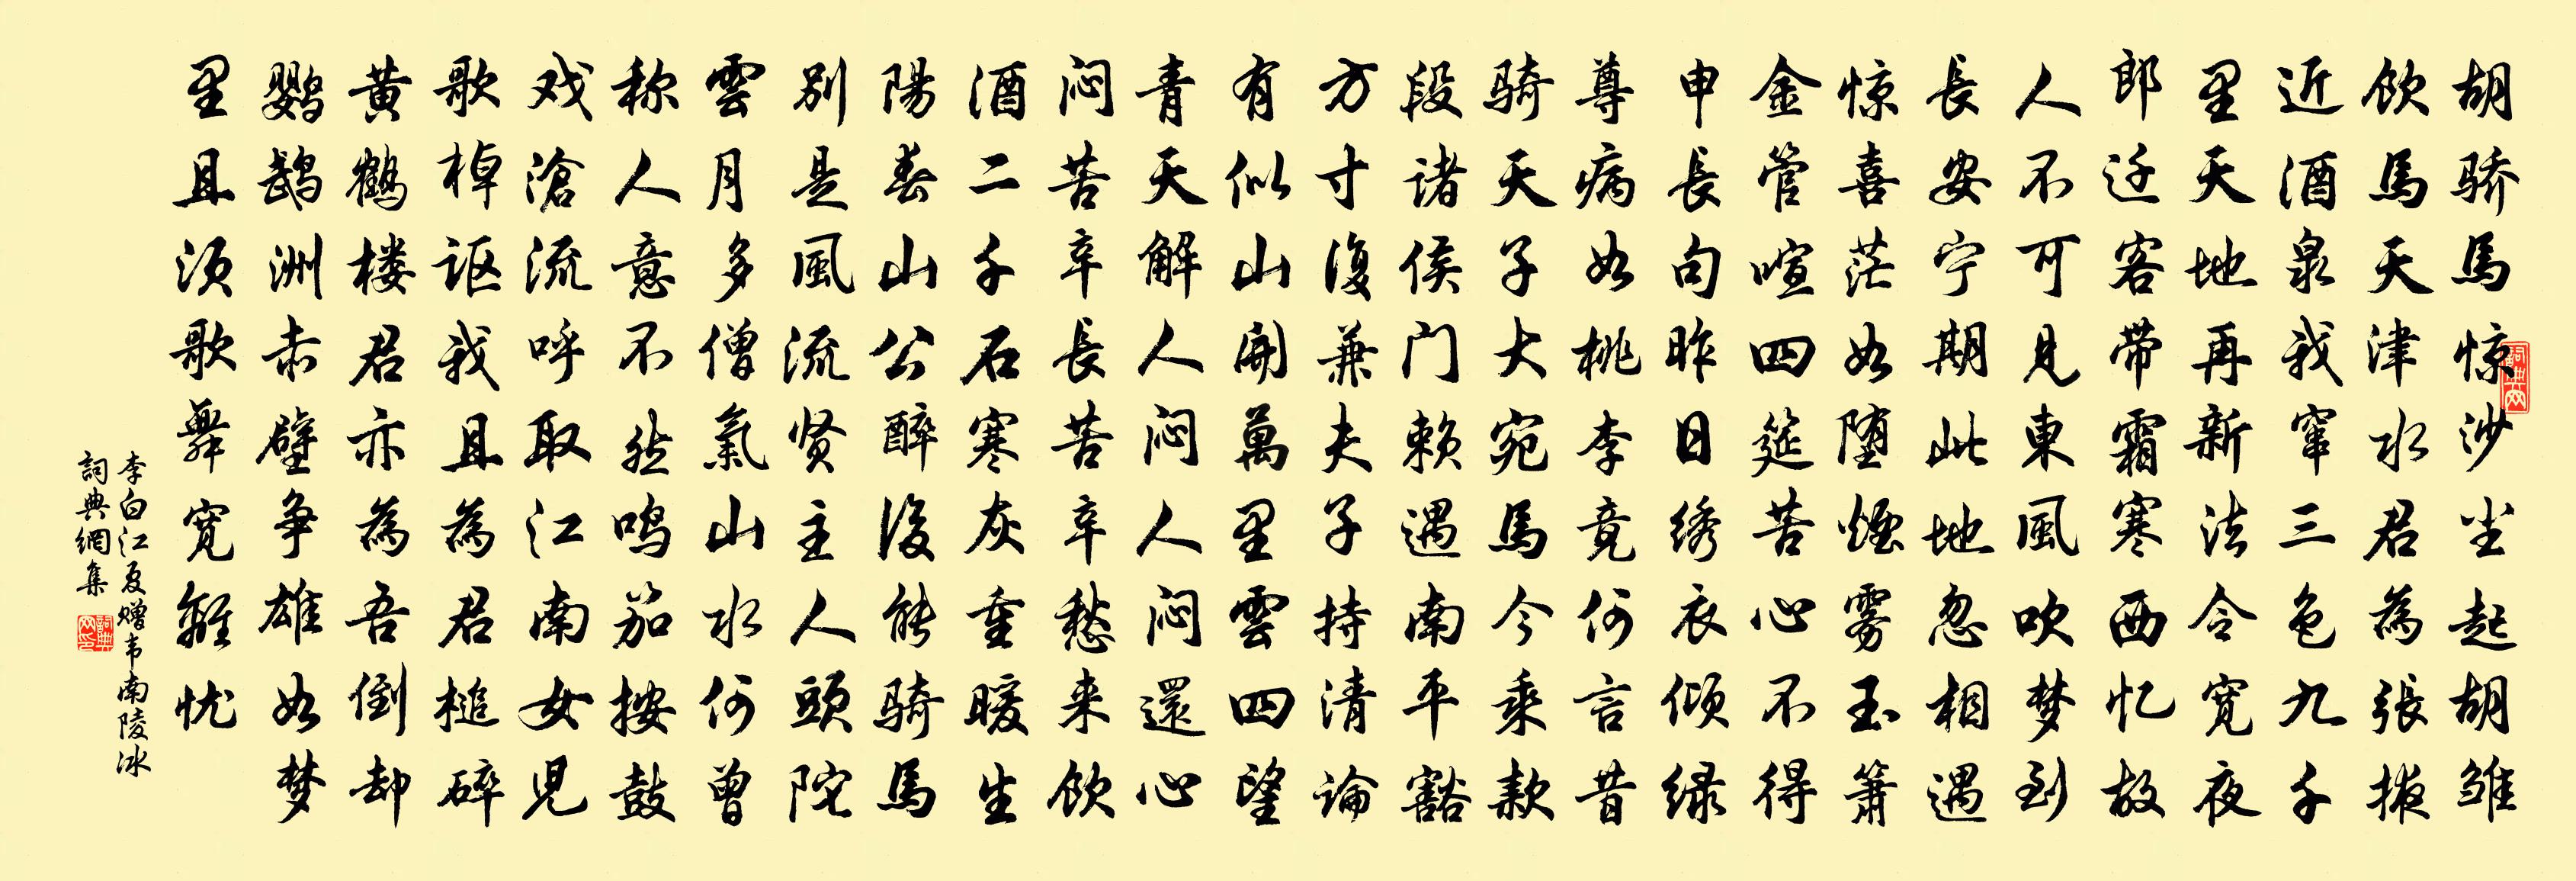 胡骄馬惊沙尘起胡雏
饮馬天津水君為張掖
近酒泉我窜三色九千
里天地再新法令宽夜
郎迁客带霜寒西忆故
人不可見東風吹梦到
長安宁期此地忽相遇
惊喜茫如堕煙雾玉箫
金管喧四筵苦心不得
申長句昨日绣衣倾绿
尊病如桃李竟何言昔
骑天子大宛馬今乘款
段诸侯门赖遇南平豁
方寸復兼夫子持清論
有似山開萬里雲四望
青天解人闷人闷還心
闷苦辛長苦辛愁来饮
酒二千石寒灰重暖生
陽春山公醉後能骑馬
别是風流贤主人頭陀
雲月多僧氣山水何曾
称人意不然鸣笳按鼓
戏滄流呼取江南女児
歌棹讴我且為君槌碎
黄鹤楼君亦為吾倒却
鹦鹉洲赤壁争雄如梦
里且须歌舞宽離忧
李白江夏赠韦南陵冰
詞典網集
詞典网